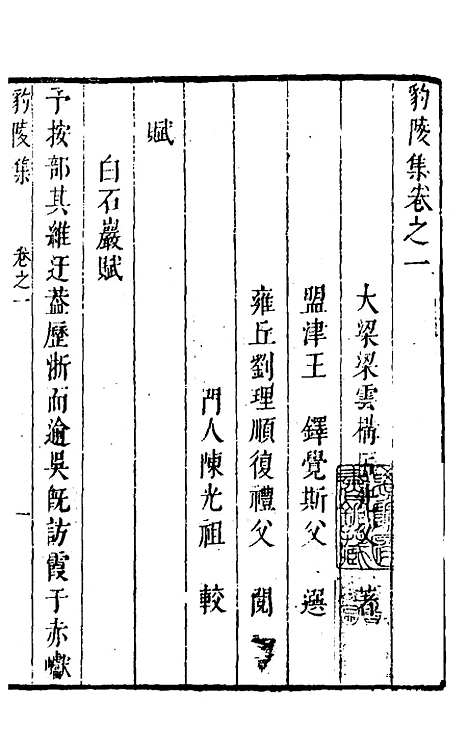 豹陵集卷之一
大梁梁雲構 著
盟津王 鐸覺斯父 選
雍丘劉理順復禮父 閱
門人陳光祖 較
賦
白石巖賦
予按部其維迂葢歷浙而逾吳旣訪霞于赤巘
豹陵集 卷之一 一